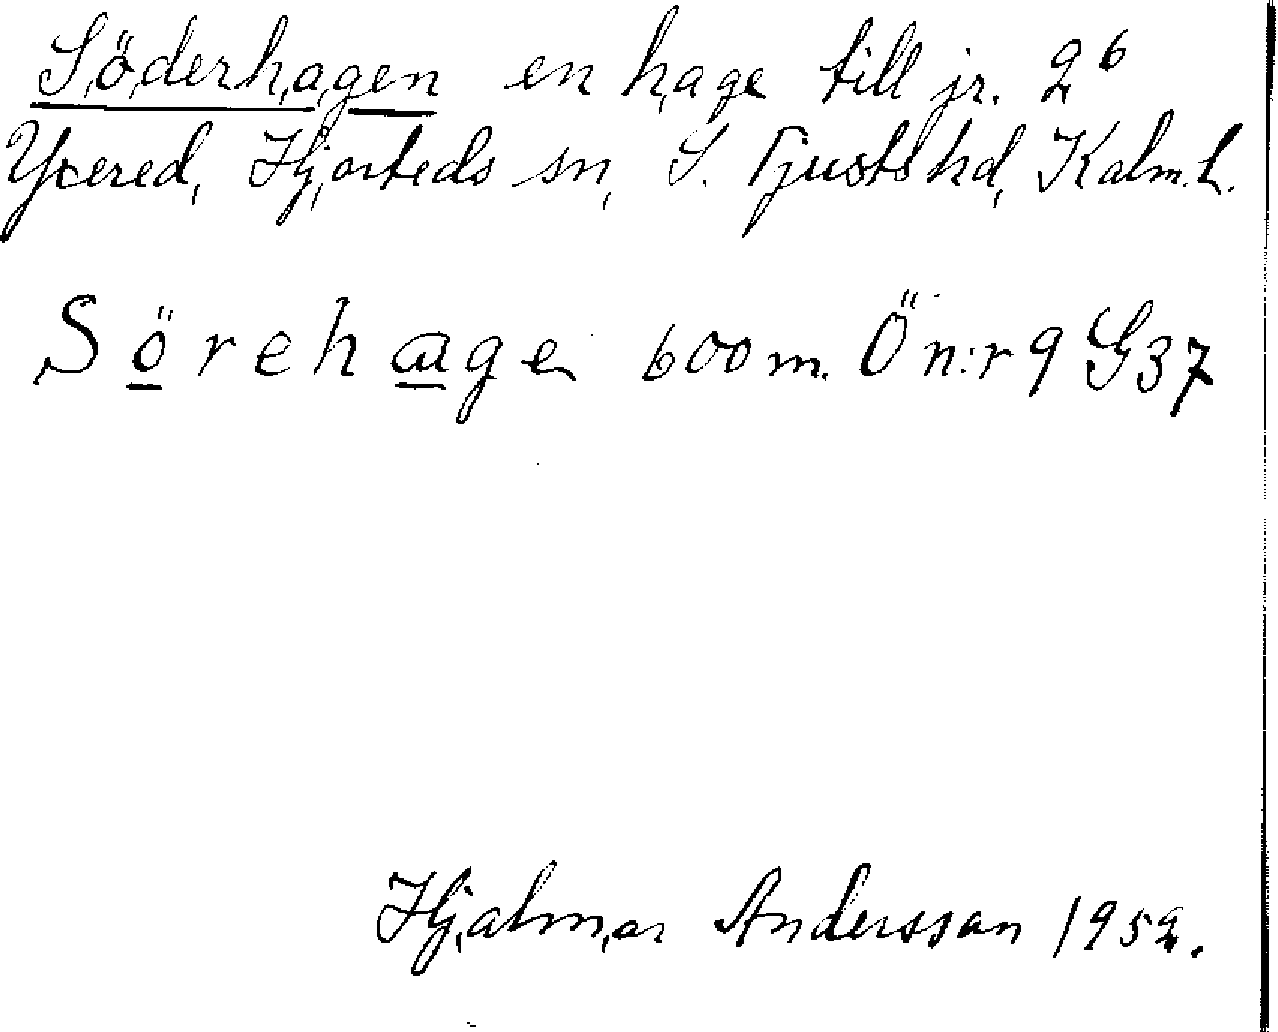 Söderhagen en hage till jr. 2⁶
Yxered, Hjorteds sn, S. Tjusts hd, Kalm. L.
Sörehage 600 m. Ö n:r 9 G37
Hjalmar Andersson 1952.